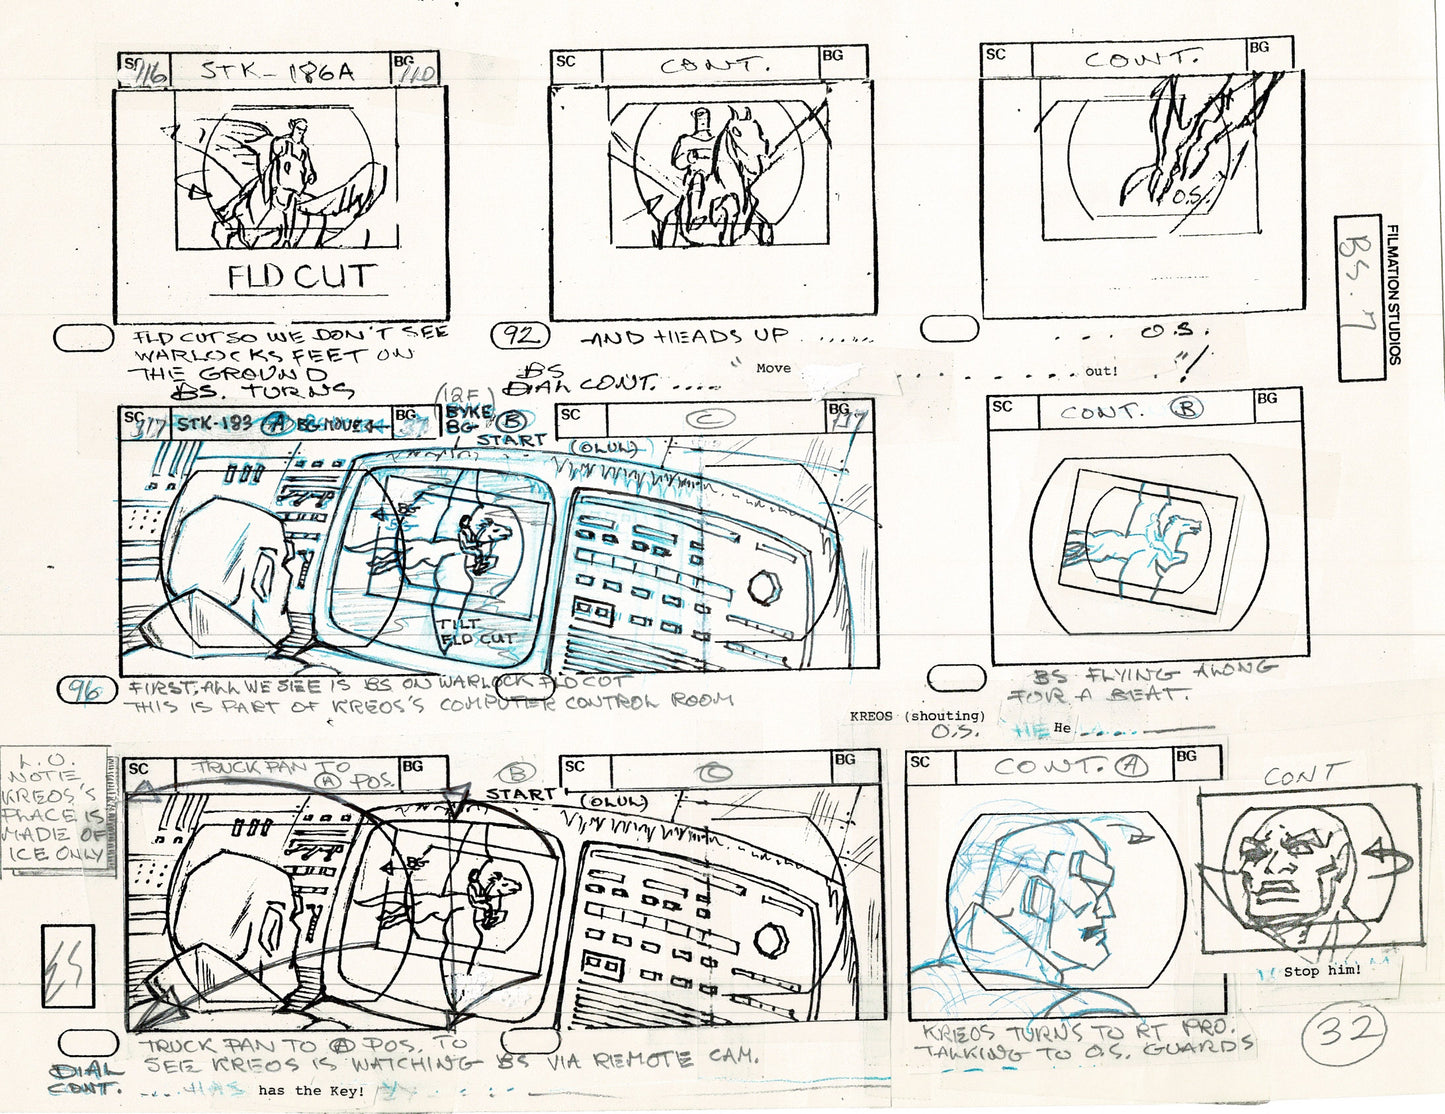 SC 116 STK-186A BG 110
SC CONT. BG
SC CONT. BG
FLD CUT
O.S.
FILMATION STUDIOS
BS. 7
FLD CUT SO WE DON'T SEE
WARLOCKS FEET ON
THE GROUND
BS. TURNS
92 AND HEADS UP ......
BS
DIAL CONT. ....
" Move
.... O.S.
......out! "!
SC 317 STK-183 A BG MOVE BG
(12F)
BYKE
BG
B
START
SC C BG 117
(OLUL)
SC CONT. B BG
BG
TILT
FLD CUT
96 FIRST, ALL WE SEE IS BS ON WARLOCK FLD CUT
THIS IS PART OF KREOS'S COMPUTER CONTROL ROOM
BS FLYING ALONG
FOR A BEAT.
KREOS (shouting)
O.S. HE He ........
L.O.
NOTE
KREOS'S
PLACE IS
MADE OF
ICE ONLY
SC TRUCK PAN TO BG
A POS.
B
START
SC C BG
(OLUL)
SC CONT. A BG
CONT
BG
Stop him!
TRUCK PAN TO A POS. TO
SEE KREOS IS WATCHING BS VIA REMOTE CAM.
DIAL
CONT. ... HAS has the Key!
KREOS TURNS TO RT PRO.
TALKING TO O.S. GUARDS
32